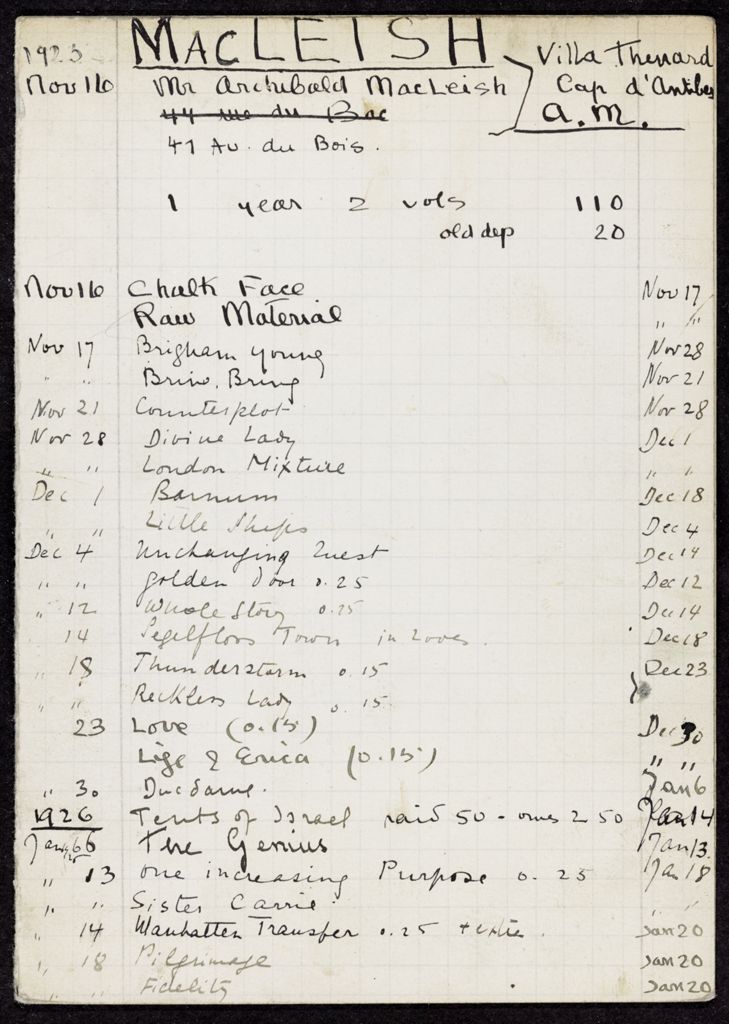 1925 MACLEISH Villa Thenard
Nov 16 Mr Archibald MacLeish Cap d'Antibes
44 rue du Bac A.M.
41 Av. du Bois.
1 year 2 vols 110
old dep 20
Nov 16 Chalk Face Nov 17
Raw Material " "
Nov 17 Brigham Young Nov 28
" " Bring, Bring Nov 21
Nov 21 Counterplot Nov 28
Nov 28 Divine Lady Dec 1
" " London Mixture " "
Dec 1 Barnum Dec 18
" " Little Ships Dec 4
Dec 4 Unchanging Quest Dec 14
" " golden Door 0.25 Dec 12
" 12 Whole Story 0.25 Dec 14
14 Town in Dec 18
" 18 Thunderstorm 0.15 Dec 23
" " Reckless Lady 0.15
23 Love (0.15) Dec 30
Life & Erica (0.15) " "
" 30 Ducdame. Jan 6
1926 Tents of Israel paid 50 - owes 2 50 Jan 14
Jan 6 The Genius Jan 13
" 13 one increasing Purpose 0.25 Jan 18
" " Sister Carrie " "
" 14 Manhatten Transfer 0.25 Jan 20
" 18 Pilgrimage Jan 20
" " Fidelity Jan 20